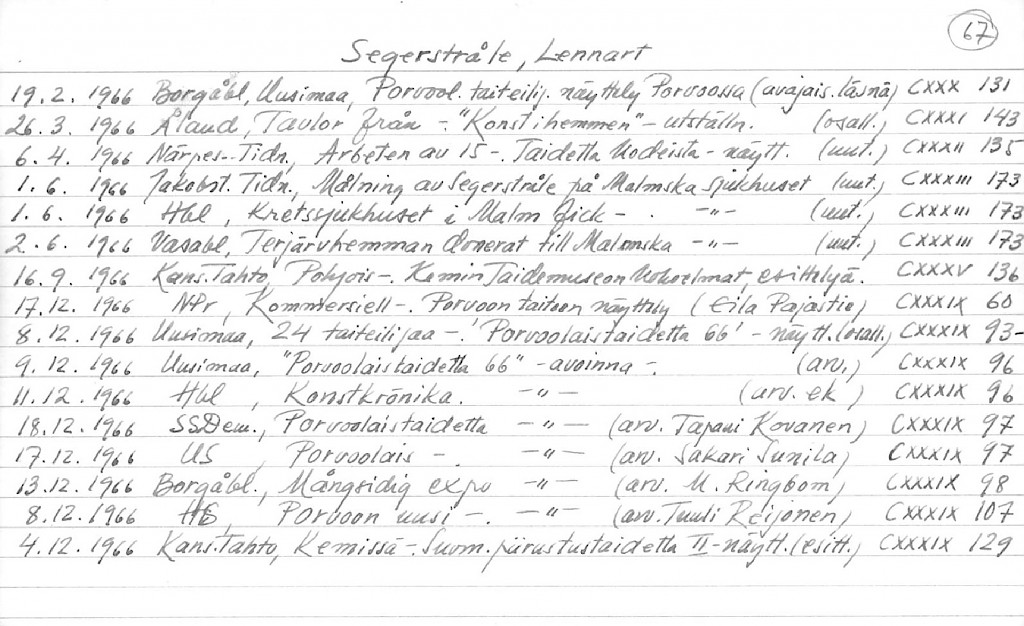 67
Segerstråle, Lennart
19.2. 1966 Borgåbl, Uusimaa, Porvool. taiteilij. näyttely Porvoossa (avajais. läsnä) CXXX 131
26.3. 1966 Åland, Tavlor från - "Konst i hemmen" - utställn. (osall.) CXXXI 143
6.4. 1966 Närpes-Tidn., Arbeten av 15 -. Taidetta kodeista - näytt. (uut.) CXXXII 135
1.6. 1966 Jakobst. Tidn., Målning av Segerstråle på Malmska sjukhuset (uut.) CXXXIII 173
1.6. 1966 Hbl, Kretssjukhuset i Malm fick - . -"- (uut.) CXXXIII 173
2.6. 1966 Vasabl, Terjärvhemman donerat till Malmska -"- (uut.) CXXXIII 173
16.9. 1966 Kans.Tahto, Pohjois -. Kemin Taidemuseon kokoelmat, esittelyä. CXXXV 136
17.12. 1966 NPr, Kommersiell -. Porvoon taiteen näyttely (Eila Pajastie) CXXXIX 60
8.12. 1966 Uusimaa, 24 taiteilijaa - 'Porvoolaistaidetta 66' - näytt. (osall.) CXXXIX 93-
9.12. 1966 Uusimaa, "Porvoolaistaidetta 66" - avoinna -. (arv.) CXXXIX 96
11.12. 1966 Hbl, Konstkrönika. -"- (arv. ek) CXXXIX 96
18.12. 1966 SSDem., Porvoolaistaidetta -"- (arv. Tapani Kovanen) CXXXIX 97
17.12. 1966 US, Porvoolais -. -"- (arv. Sakari Sunila) CXXXIX 97
13.12. 1966 Borgåbl., Mångsidig expo -"- (arv. M. Ringbom) CXXXIX 98
8.12. 1966 HS, Porvoon uusi -. -"- (arv. Tuuli Reijonen) CXXXIX 107
4.12. 1966 Kans.Tahto, Kemissä -. Suom. piirustustaidetta II - näytt. (esitt.) CXXXIX 129